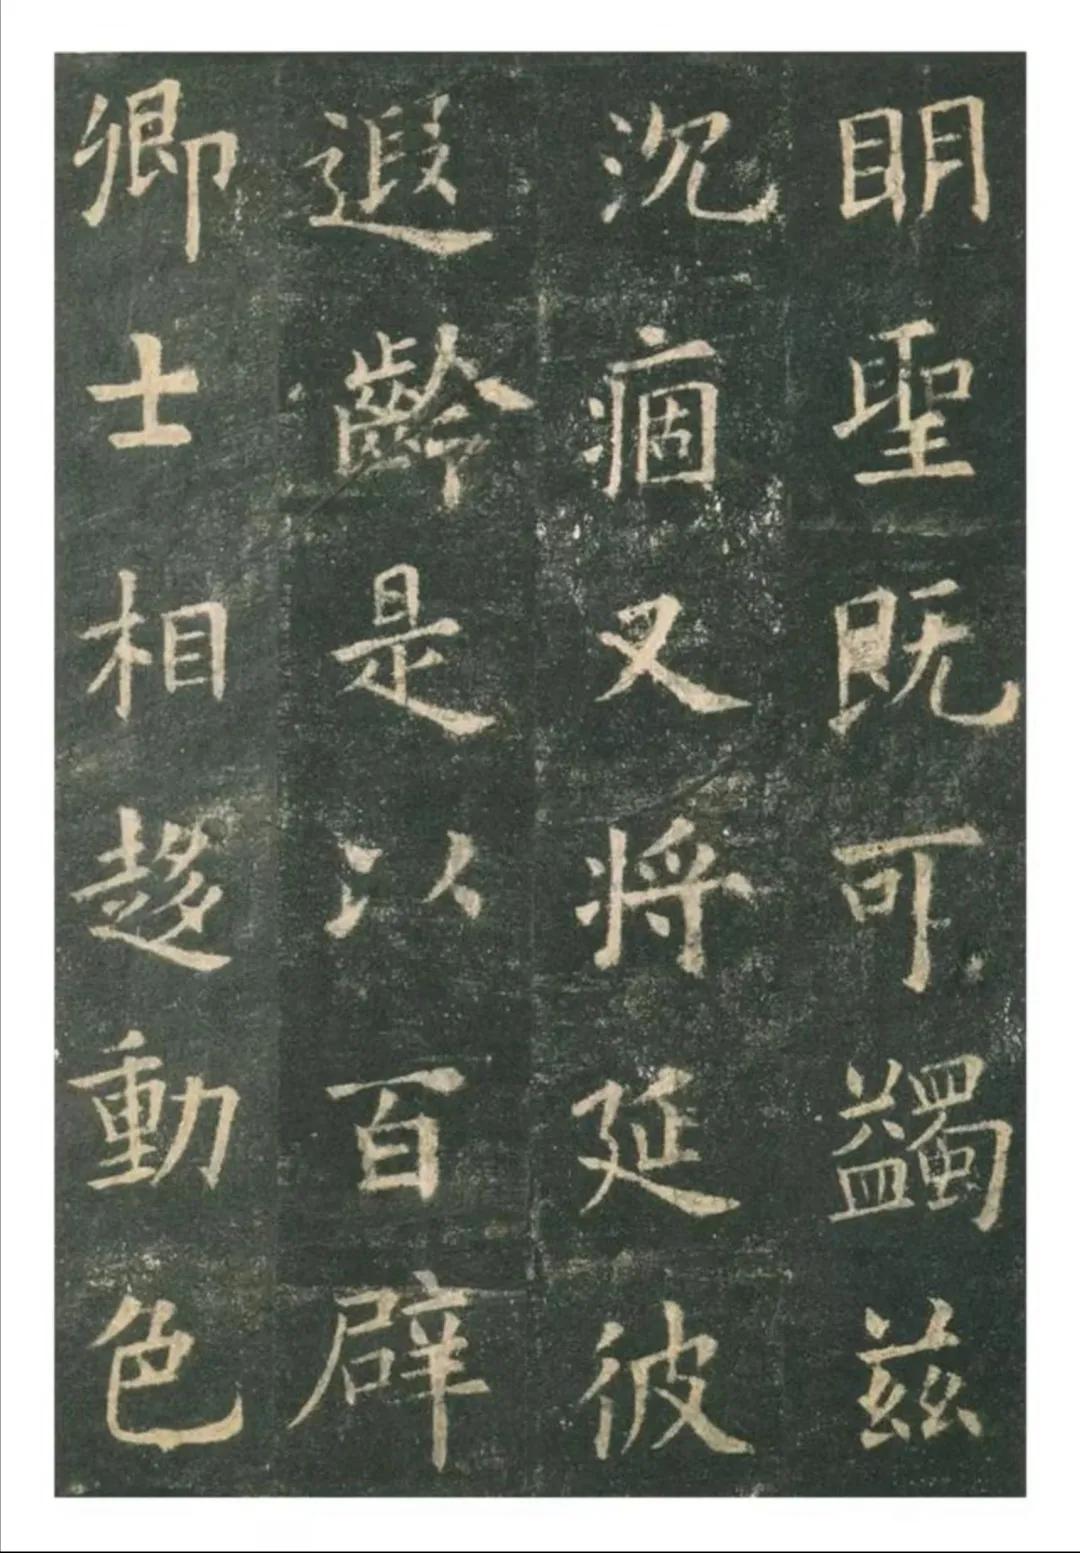 眀聖既可蠲兹
沉痼又将延彼
遐齡是以百辟
卿士相趍動色